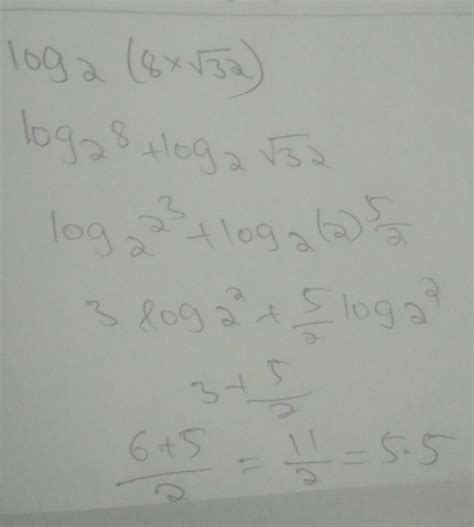 log₂ (8×√32)
log₂ 8 + log₂ √32
log₂ 2³ + log₂ (2)^5/2
3 log₂ 2 + 5/2 log₂ 2
3 + 5/2
(6+5)/2 = 11/2 = 5.5